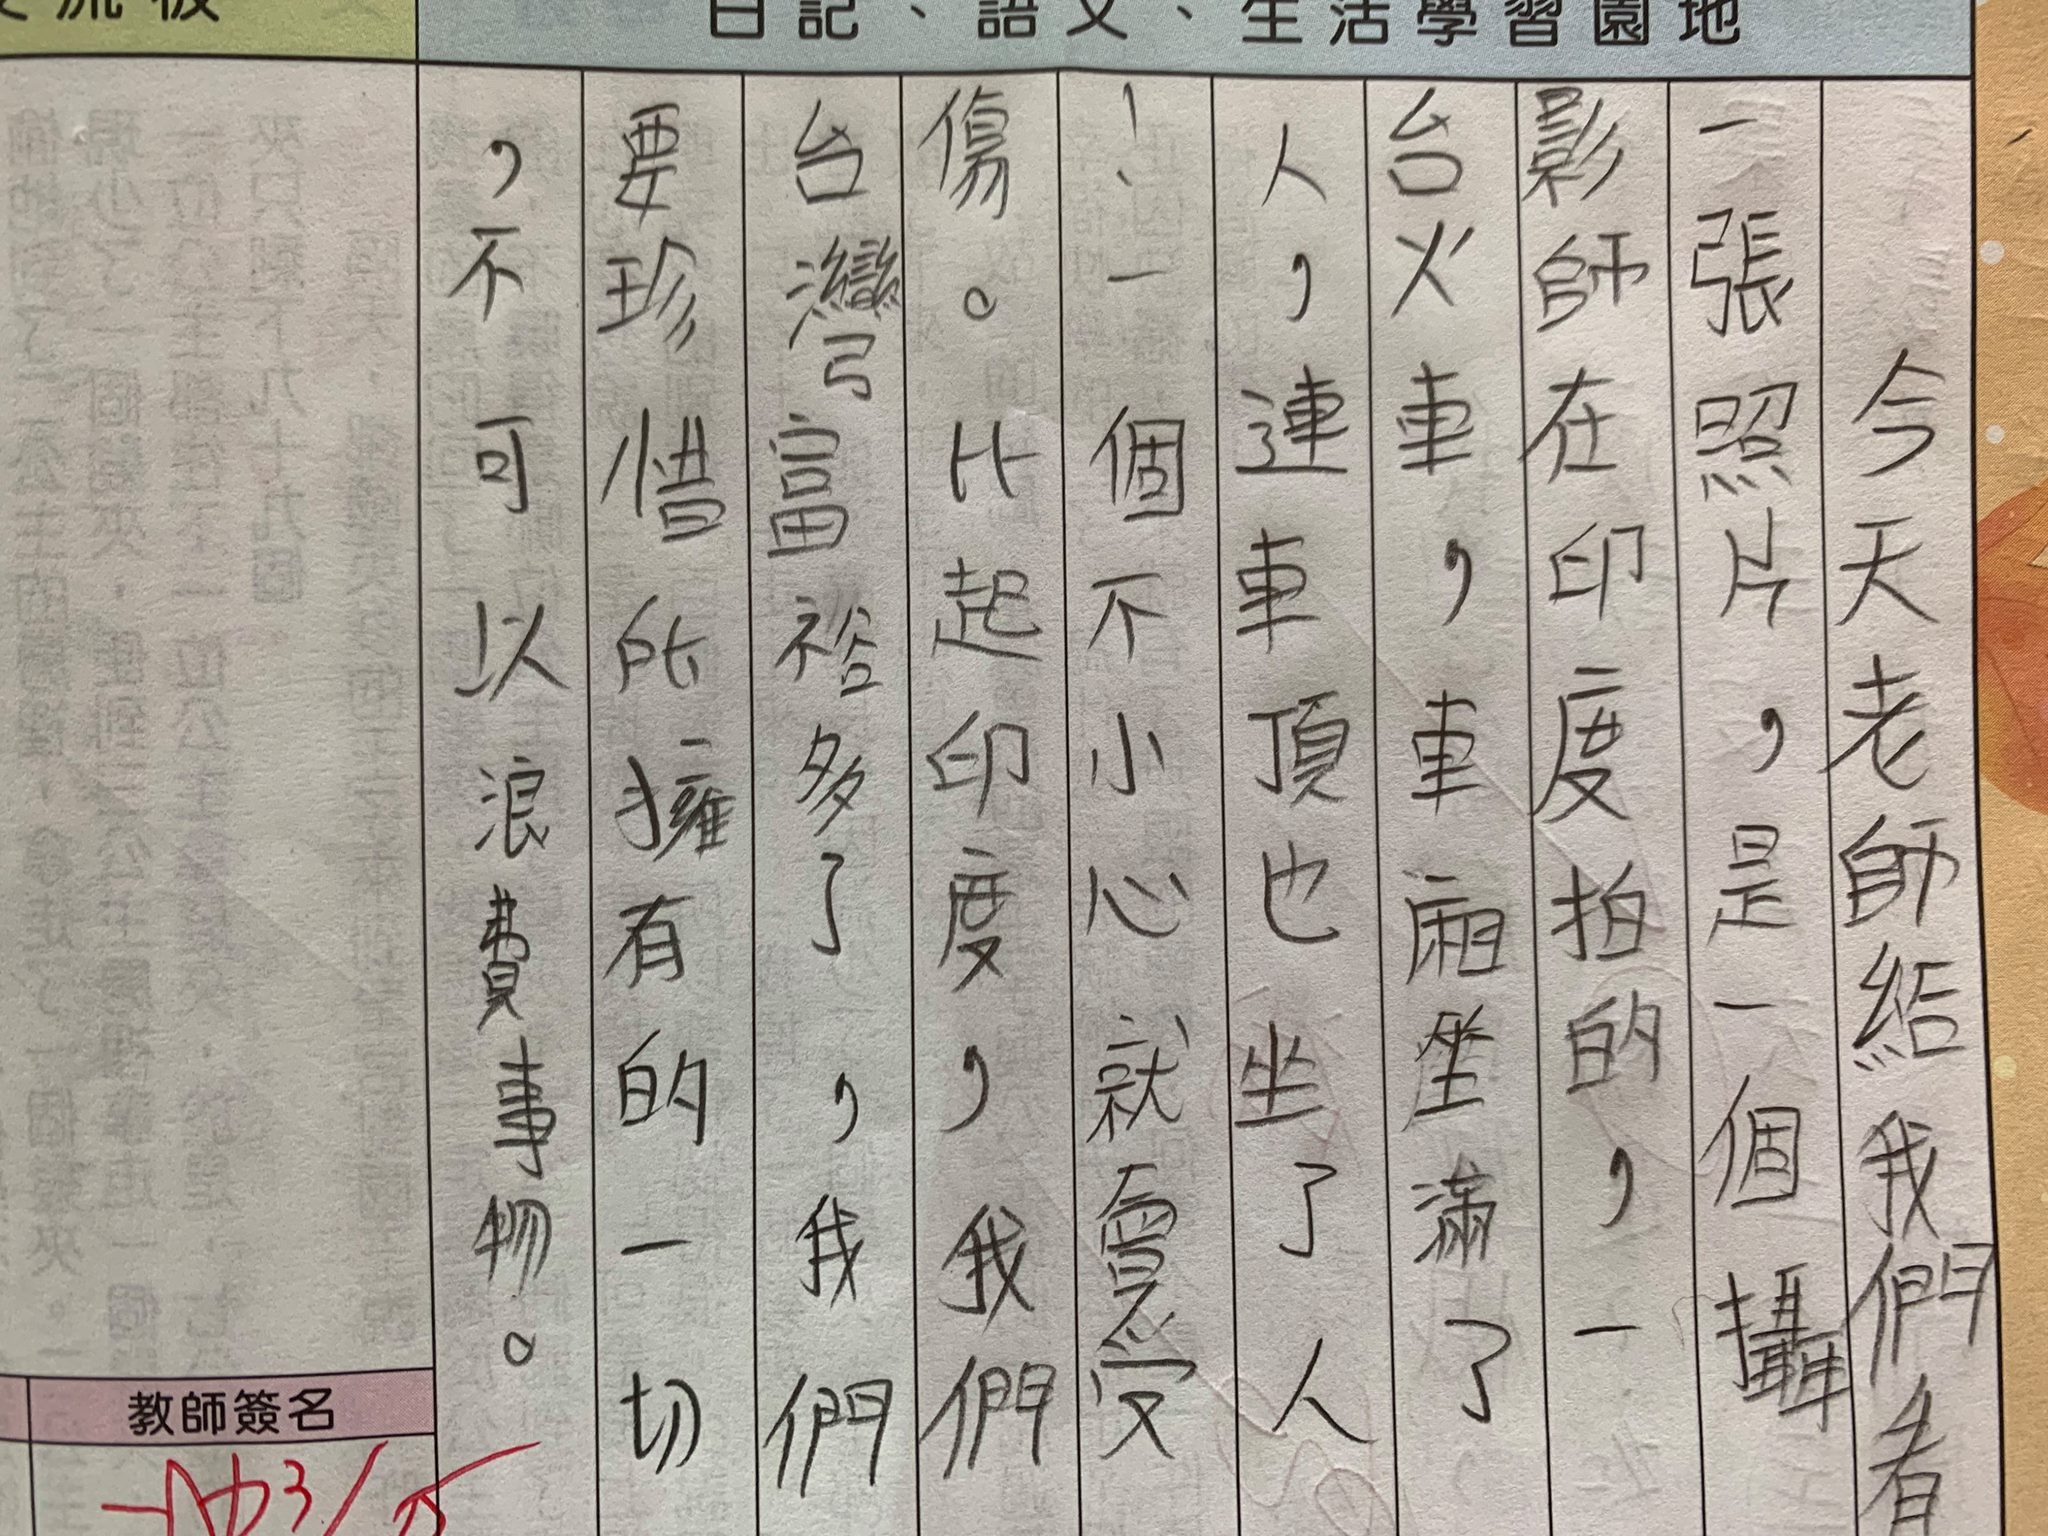 日記、語文、生活學習園地
今天老師給我們看
一張照片，是一個攝
影師在印度拍的，一
台火車，車廂坐滿了
人，連車頂也坐了人
！一個不小心就會受
傷。比起印度，我們
台灣富裕多了，我們
要珍惜所擁有的一切
，不可以浪費事物。
教師簽名